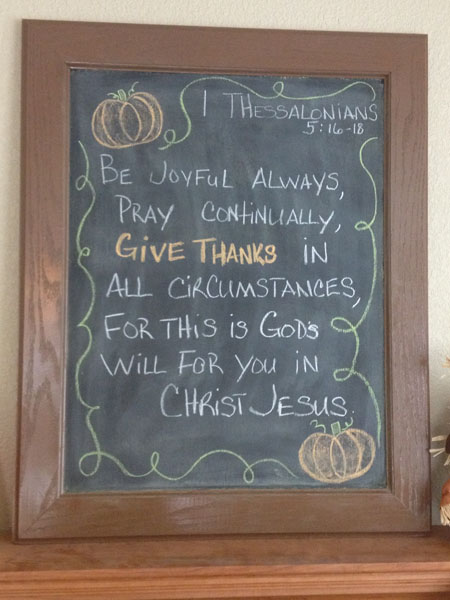 1 THESSALONIANS
5:16-18
BE JOYFUL ALWAYS,
PRAY CONTINUALLY,
GIVE THANKS IN
ALL CIRCUMSTANCES,
FOR THIS IS GOD'S
WILL FOR YOU IN
CHRIST JESUS.